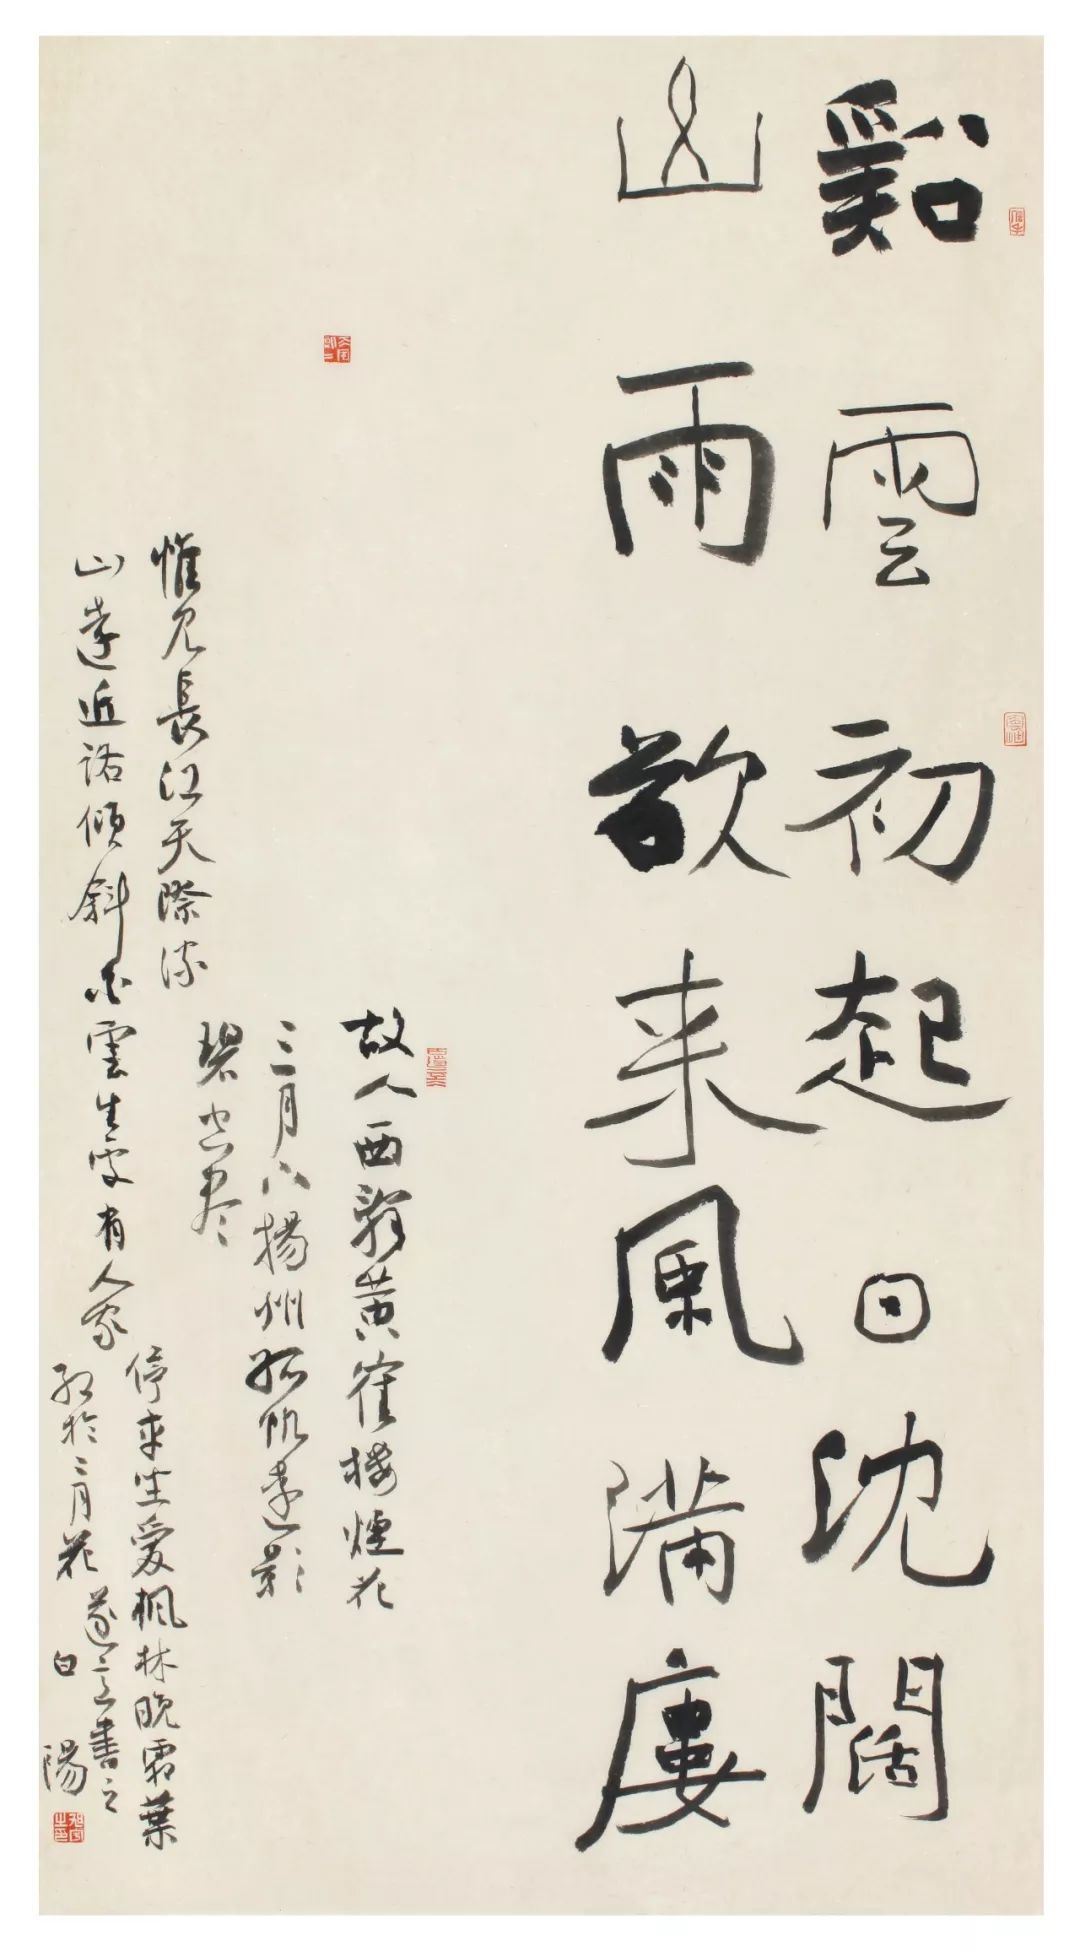 谿雲初起日沈闊
山雨欲来風滿廔
故人西辭黄鶴樓煙花
三月下揚州孤帆遠影
碧空尽
惟見長江天際流
山遠近路傾斜白雲生處有人家
停車坐愛楓林晚霜葉
紅於二月花
遂意書之
白陽